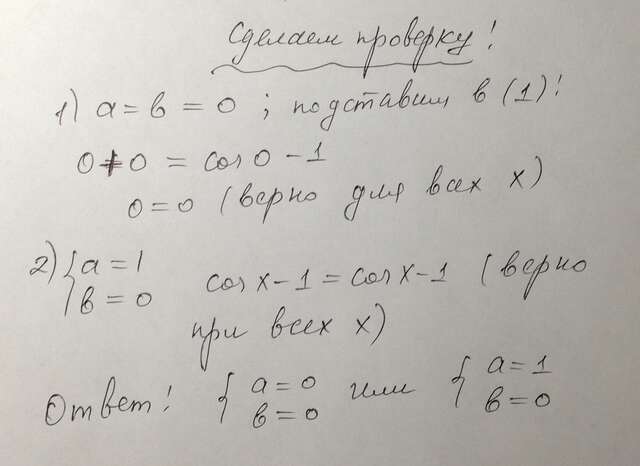 Сделаем проверку!
1) a = b = 0 ; подставим в (1)!
0 + 0 = cos 0 - 1
0 = 0 (верно для всех x)
2) { a = 1
b = 0
cos x - 1 = cos x - 1 (верно
при всех x)
Ответ! { a = 0
b = 0
или { a = 1
b = 0